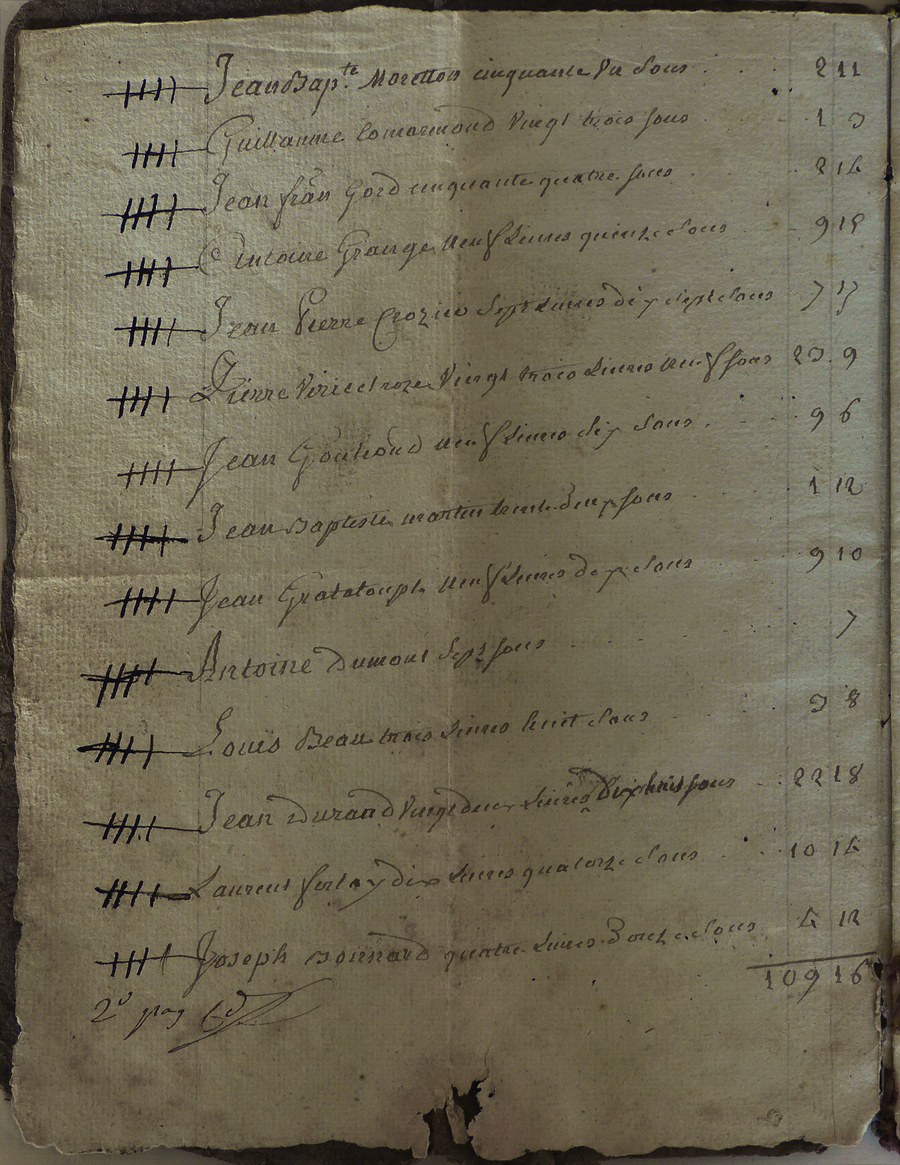 Jean Bap.te Moretton cinquante Un sous 2 11
Guillaume Comarmond Vingt trois sous 1 3
Jean fran Gord cinquante quatre sous 2 14
Antoine Grange neuf Livres quinze sous 9 15
Jean Pierre Crozier Sept Livres dix sept sous 7 17
Pierre Vingt trois Livres neuf sous 23 9
Jean neuf Livres six sous 9 6
Jean Baptiste martin trente deux sous 1 12
Jean Grataloup neuf Livres dix sous 9 10
Antoine Dumont Sept sous 7
Louis Beau trois Livres huit sous 3 8
Jean Durand Vingt deux Livres Dix huit sous 22 18
Laurent dix Livres quatorze sous 10 14
Joseph Bonnard quatre Livres Douze sous 4 12
109 16
2e pag